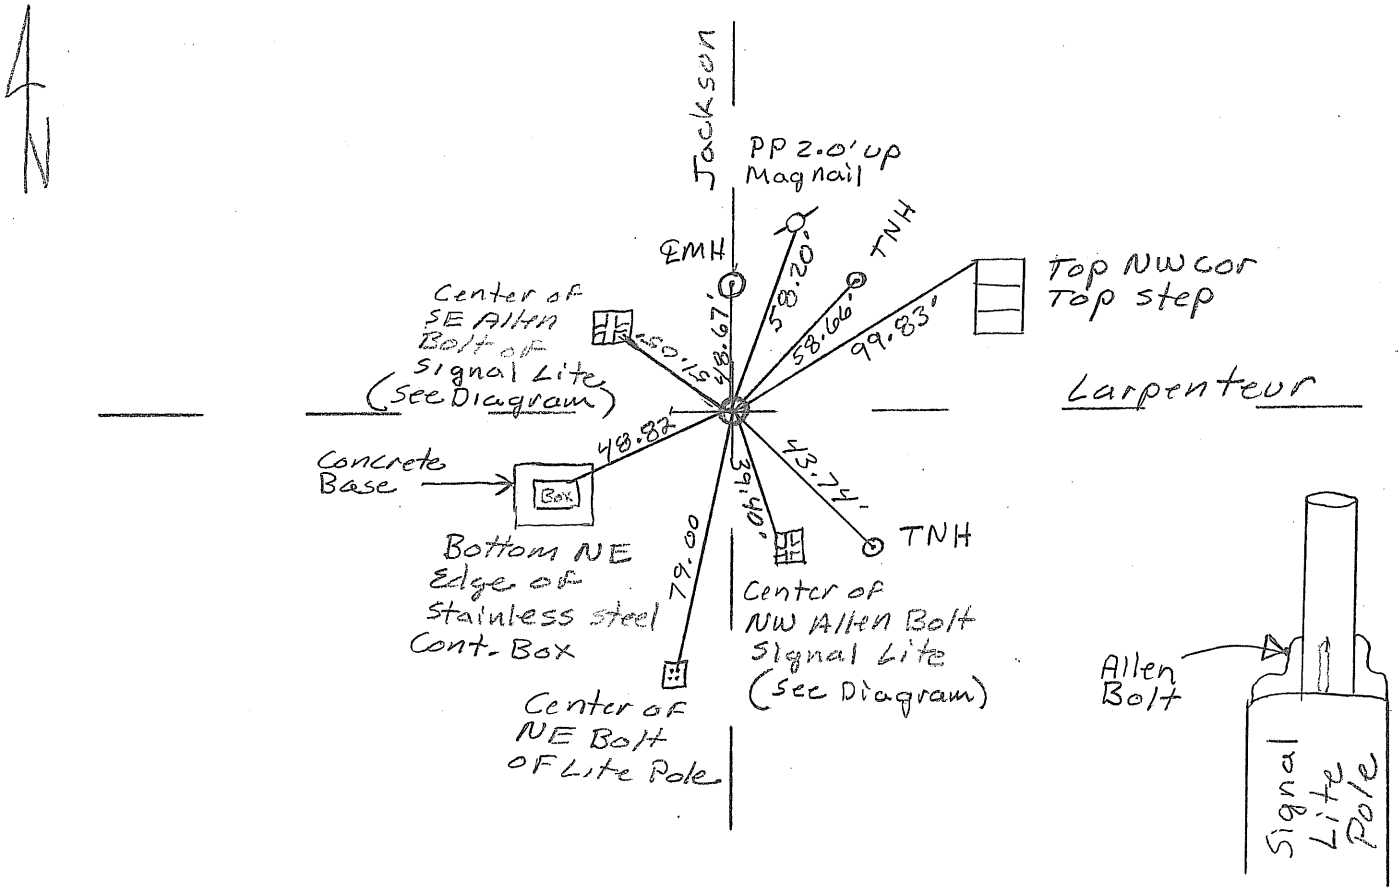 N
Jackson
PP 2.0' up
Magnail
TNH
℄MH
58.20'
48.67'
58.66'
99.83'
Top NW Cor
Top step
Center of
SE Allen
Bolt of
Signal Lite
(See Diagram)
51.05'
Larpenteur
48.82'
Concrete
Base
Box
43.74'
39.40'
79.00
TNH
Bottom NE
Edge of
Stainless steel
Cont. Box
Center of
NW Allen Bolt
Signal Lite
(See Diagram)
Center of
NE Bolt
of Lite Pole
Allen
Bolt
Signal
Lite
Pole